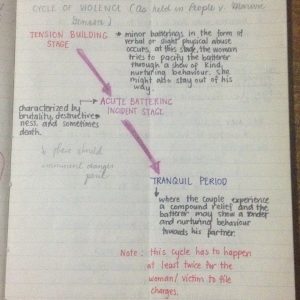 CYCLE OF VIOLENCE (As held in People v.
TENSION BUILDING
STAGE
* minor batterings in the form of
verbal or slight physical abuse
occurs, at this stage, the woman
tries to pacify the batterer
through a show of kind,
nurturing behaviour. She
might also stay out of his
way.
ACUTE BATTERING
INCIDENT STAGE
characterized by
brutality, destructive-
ness, and sometimes
death.
↳ there should
imminent danger
TRANQUIL PERIOD
where the couple experience
a compound relief and the
batterer may show a tender
and nurturing behaviour
towards his partner.
Note: this cycle has to happen
at least twice for the
woman/ victim to file
charges.